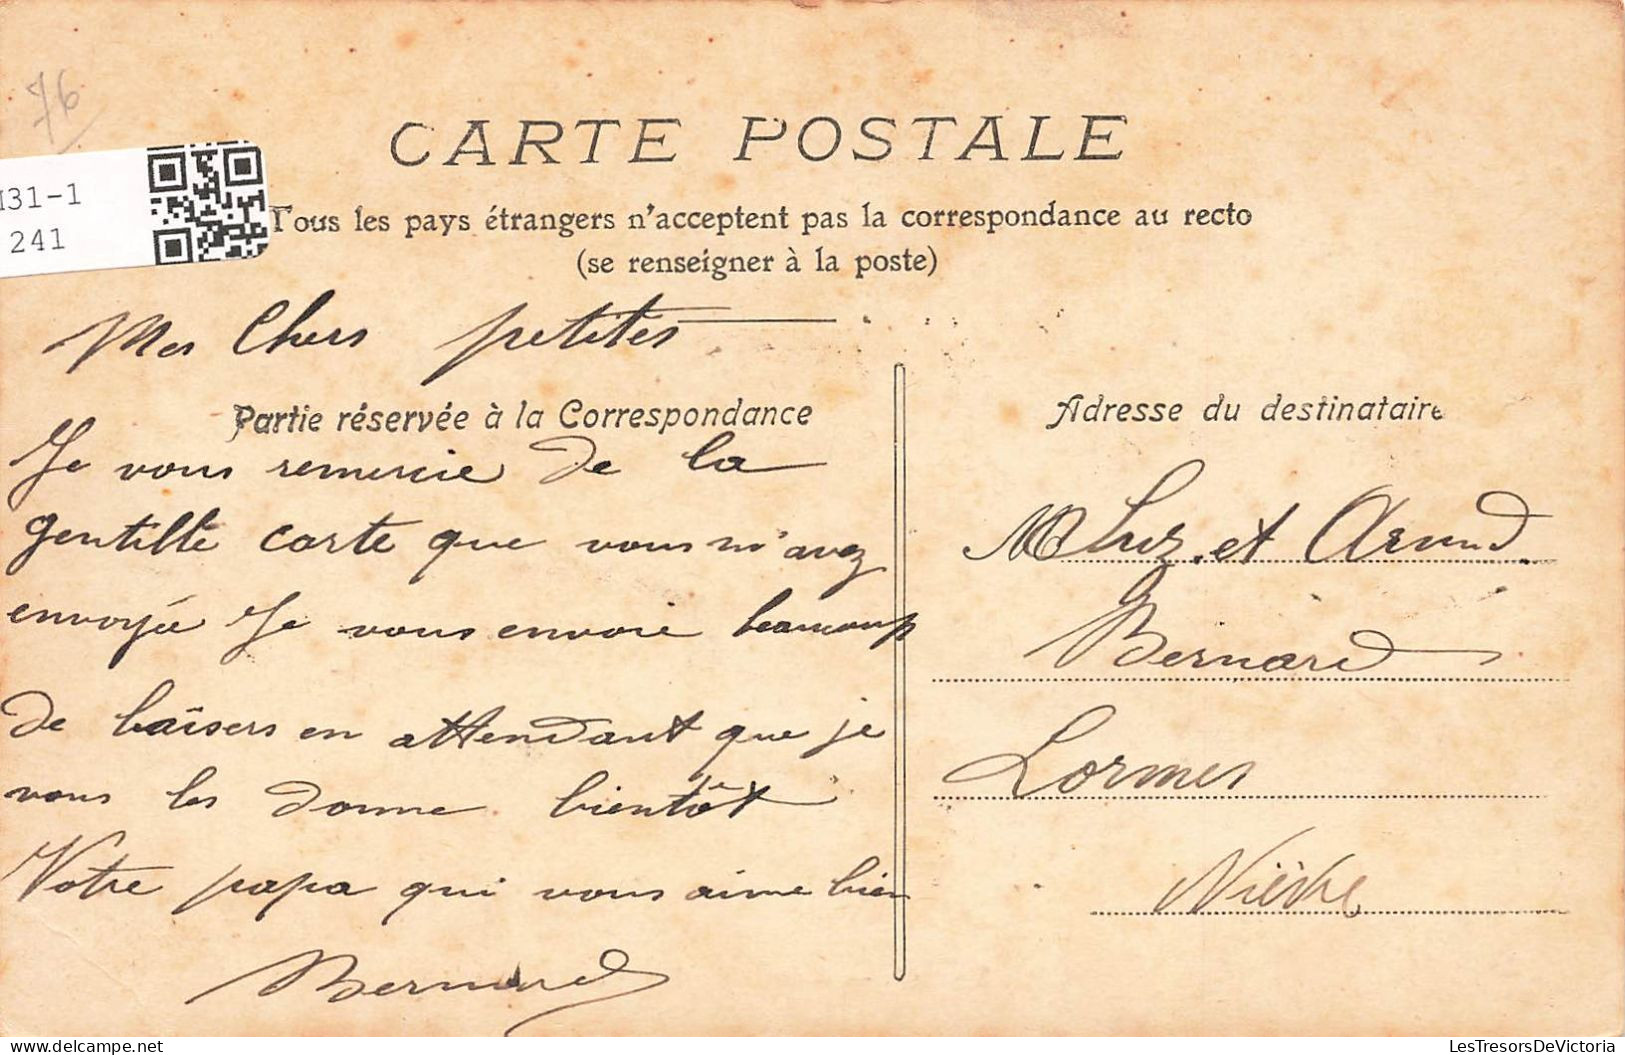 76
31-1
241
CARTE POSTALE
Tous les pays étrangers n'acceptent pas la correspondance au recto
(se renseigner à la poste)
Mes Chers petites
Partie réservée à la Correspondance
Je vous remercie de la
gentille carte que vous m'avez
envoyée Je vous envoie beaucoup
de baisers en attendant que je
vous les donne bientôt
Votre papa qui vous aime bien
Bernard
Adresse du destinataire
et
Bernard
Lormes
Nièvre
delcampe.net
LesTresorsDeVictoria